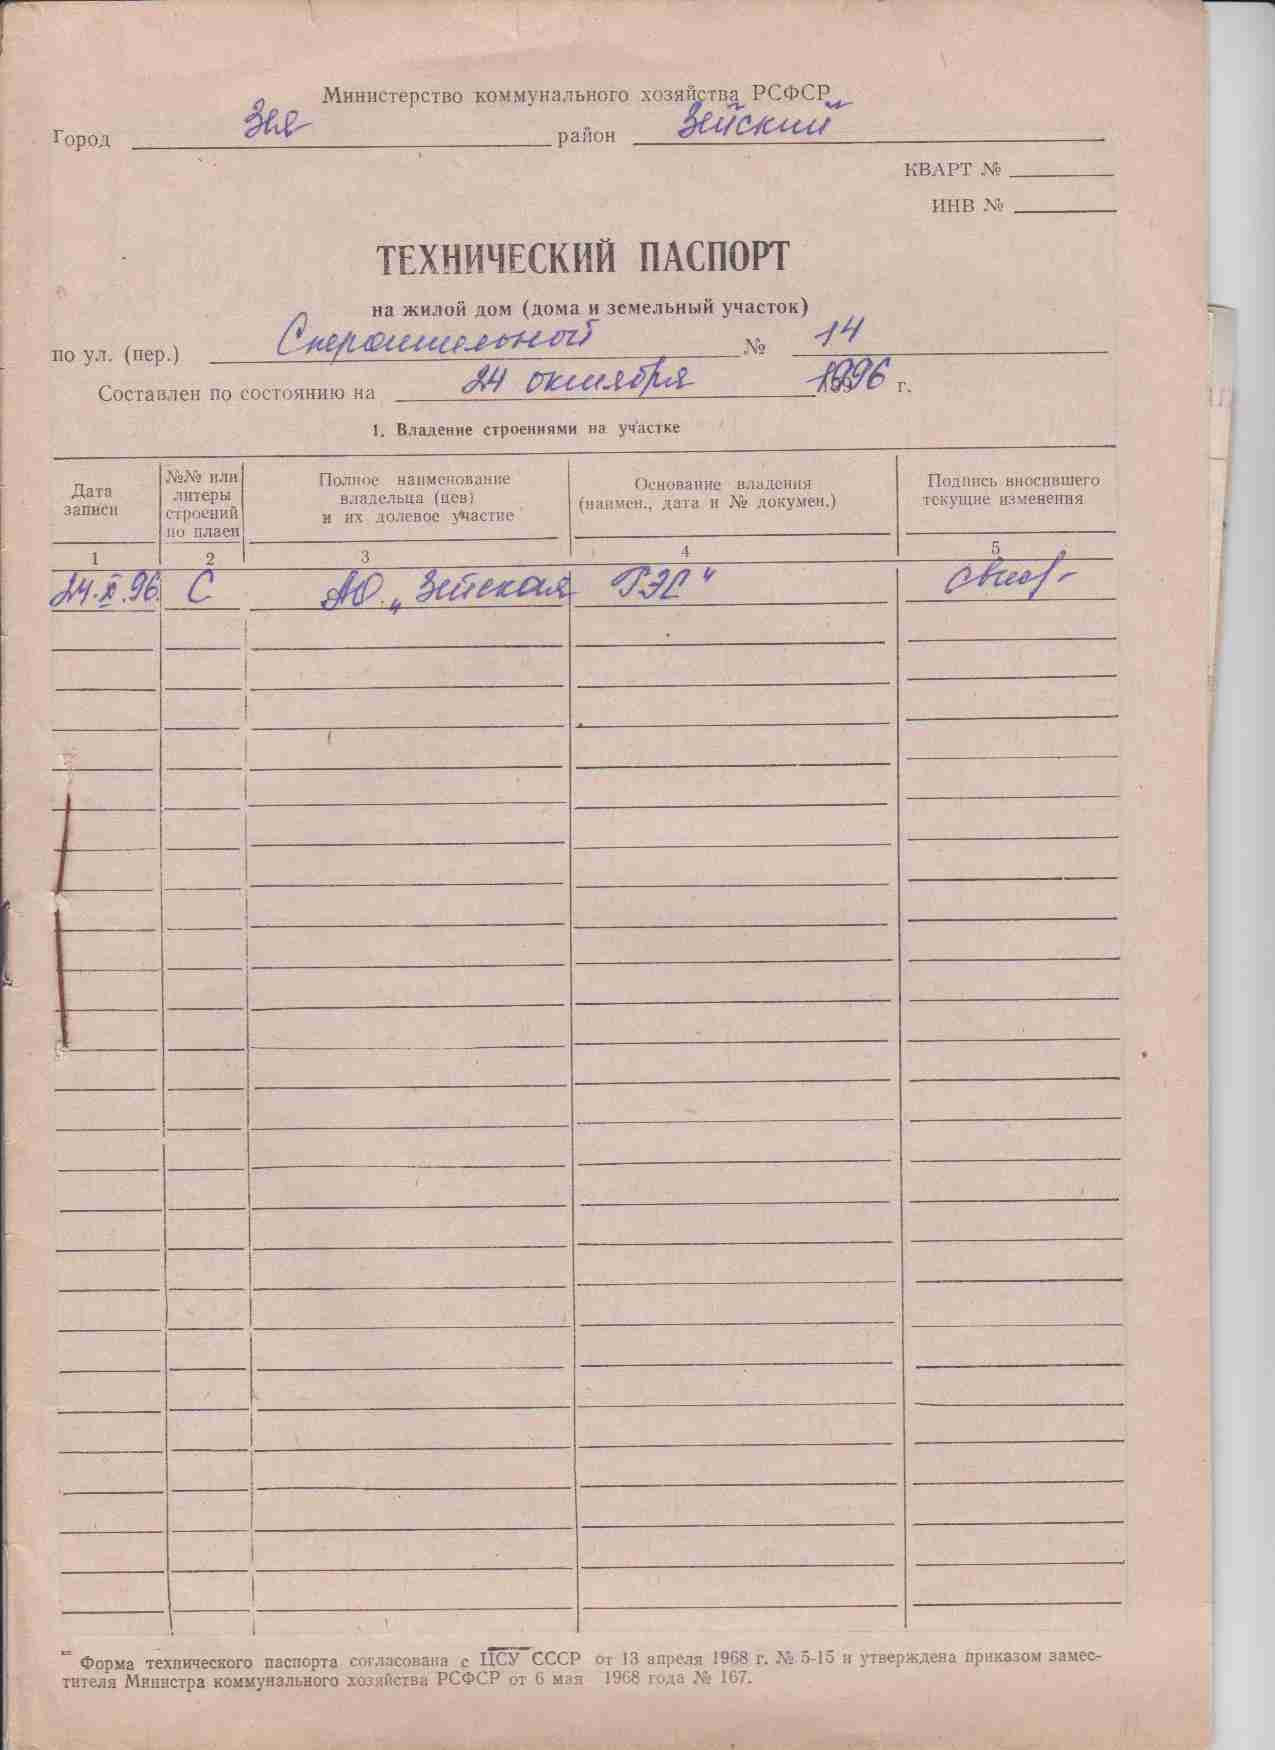 Министерство коммунального хозяйства РСФСР
Город Зея район Зейский
КВАРТ №
ИНВ №
ТЕХНИЧЕСКИЙ ПАСПОРТ
на жилой дом (дома и земельный участок)
по ул. (пер.) № 14
Составлен по состоянию на 24 октября 1996 г.
1. Владение строениями на участке
Дата записи №№ или литеры строений по плаен Полное наименование владельца (цев) и их долевое участие Основание владения (наимен., дата и № докумен.) Подпись вносившего текущие изменения
1 2 3 4 5
24.X.96. С АО „Зейская ГЭС"
Форма технического паспорта согласована с ЦСУ СССР от 13 апреля 1968 г. № 5-15 и утверждена приказом замес-
тителя Министра коммунального хозяйства РСФСР от 6 мая 1968 года № 167.